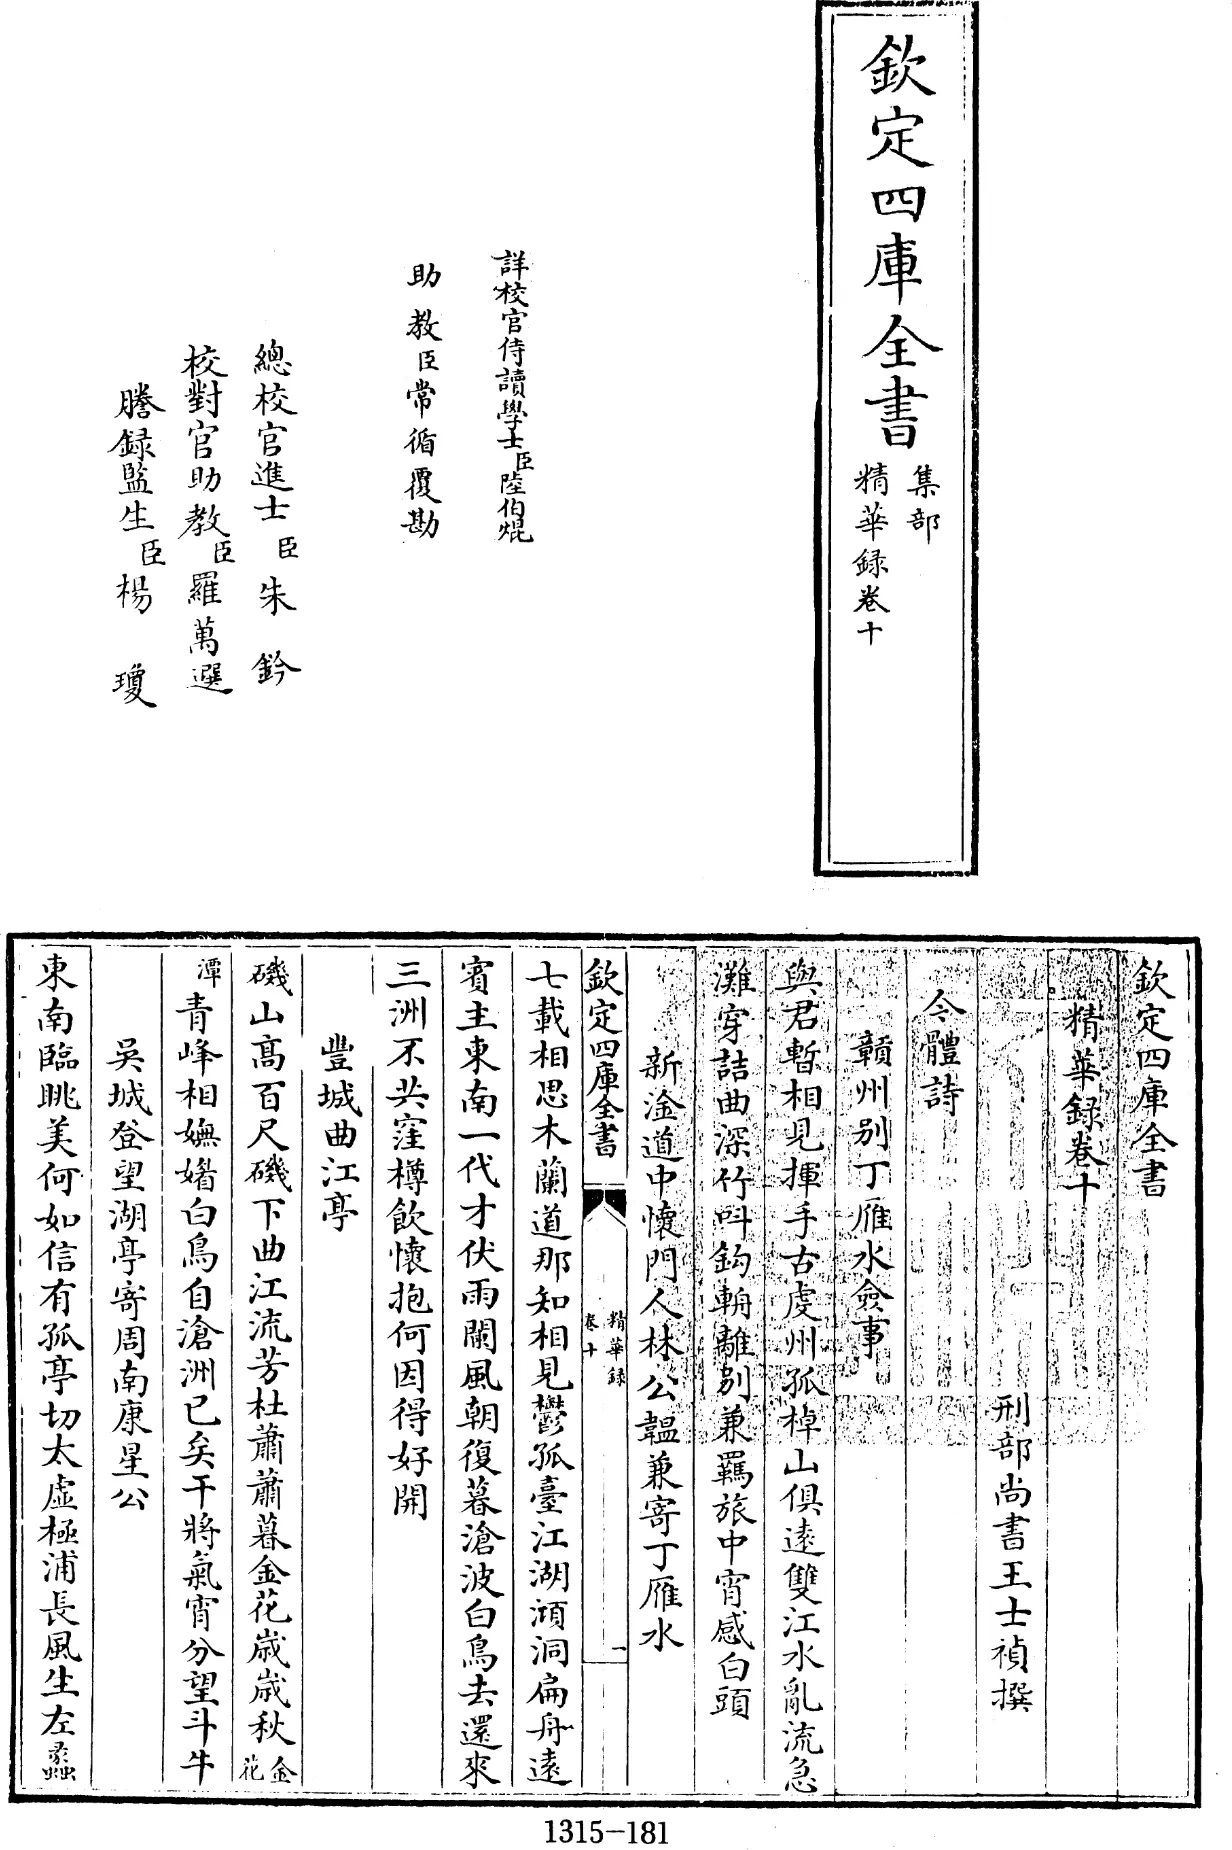 欽定四庫全書
集部
精華録卷十
詳校官侍讀學士臣陸伯焜
助教臣常循覆勘
總校官進士臣朱鈐
校對官助教臣羅萬選
謄録監生臣楊瓊
欽定四庫全書
精華録卷十
刑部尚書王士禎撰
今體詩
贛州别丁雁水僉事
與君暫相見揮手古虔州孤棹山俱逺雙江水亂流急
灘穿詰曲深竹呌鈎輈離别兼羈旅中宵感白頭
新淦道中懷門人林公韞兼寄丁雁水
欽定四庫全書
精華録
卷十
一
七載相思木蘭道那知相見鬱孤臺江湖澒洞扁舟逺
賓主東南一代才伏雨闌風朝復暮滄波白鳥去還來
三洲不共窪樽飲懷抱何因得好開
豐城曲江亭
磯山髙百尺磯下曲江流芳杜蕭蕭暮金花歳歳秋金花
潭青峰相嫵媚白鳥自滄洲已矣干將氣宵分望斗牛
吳城登望湖亭寄周南康星公
東南臨眺美何如信有孤亭切太虛極浦長風生左蠡
1315-181